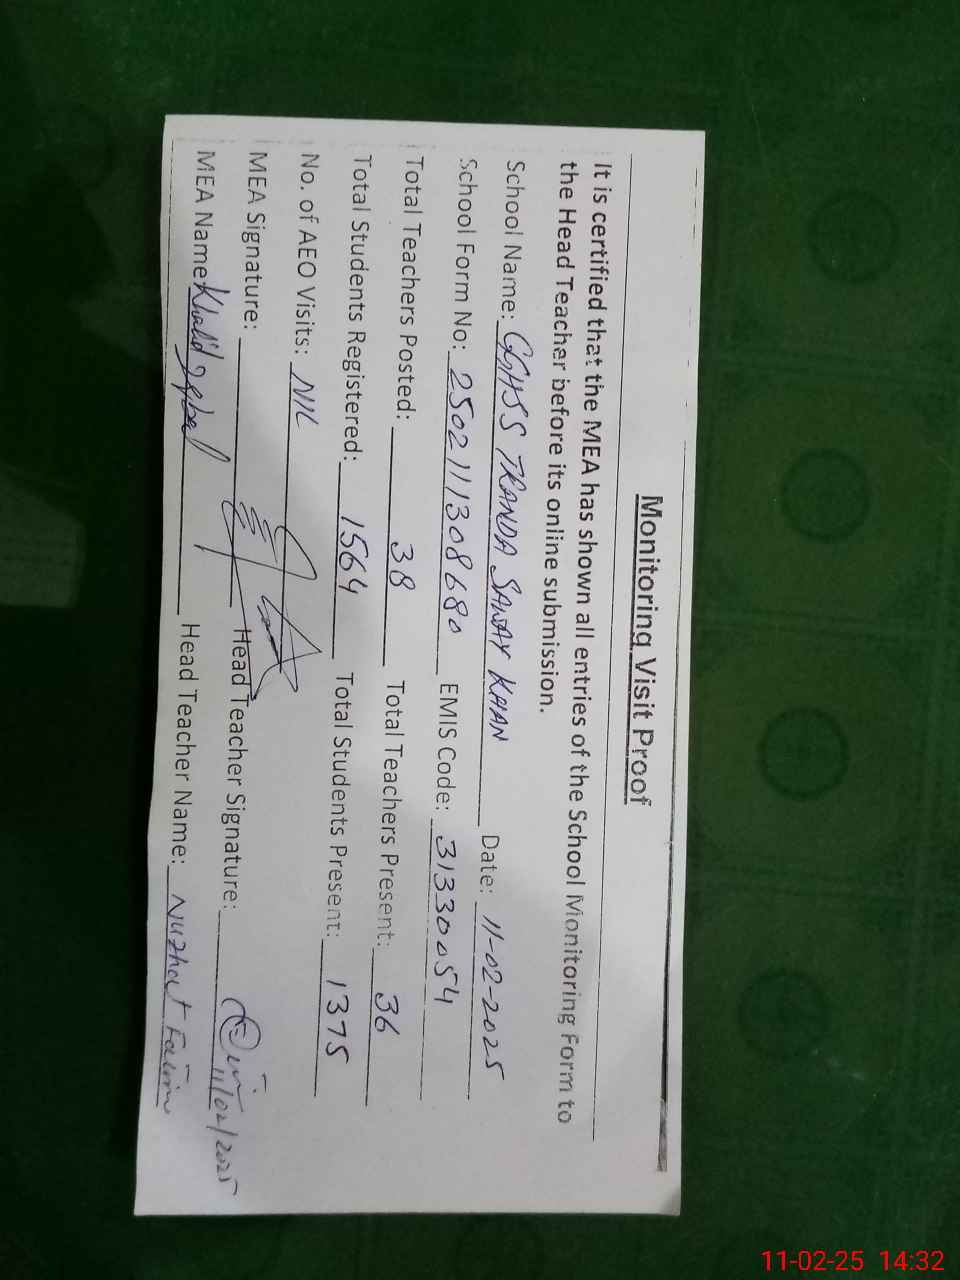 Monitoring Visit Proof
It is certified that the MEA has shown all entries of the School Monitoring Form to
the Head Teacher before its online submission.
School Name: GGHSS TRANDA SAWAY KHAN Date: 11-02-2025
School Form No: 2502111308680 EMIS Code: 31330054
Total Teachers Posted: 38 Total Teachers Present: 36
Total Students Registered: 1564 Total Students Present: 1375
No. of AEO Visits: NIL
MEA Signature: Head Teacher Signature: 11/02/2025
MEA Name: Khalid Iqbal Head Teacher Name: Nuzhat
11-02-25 14:32